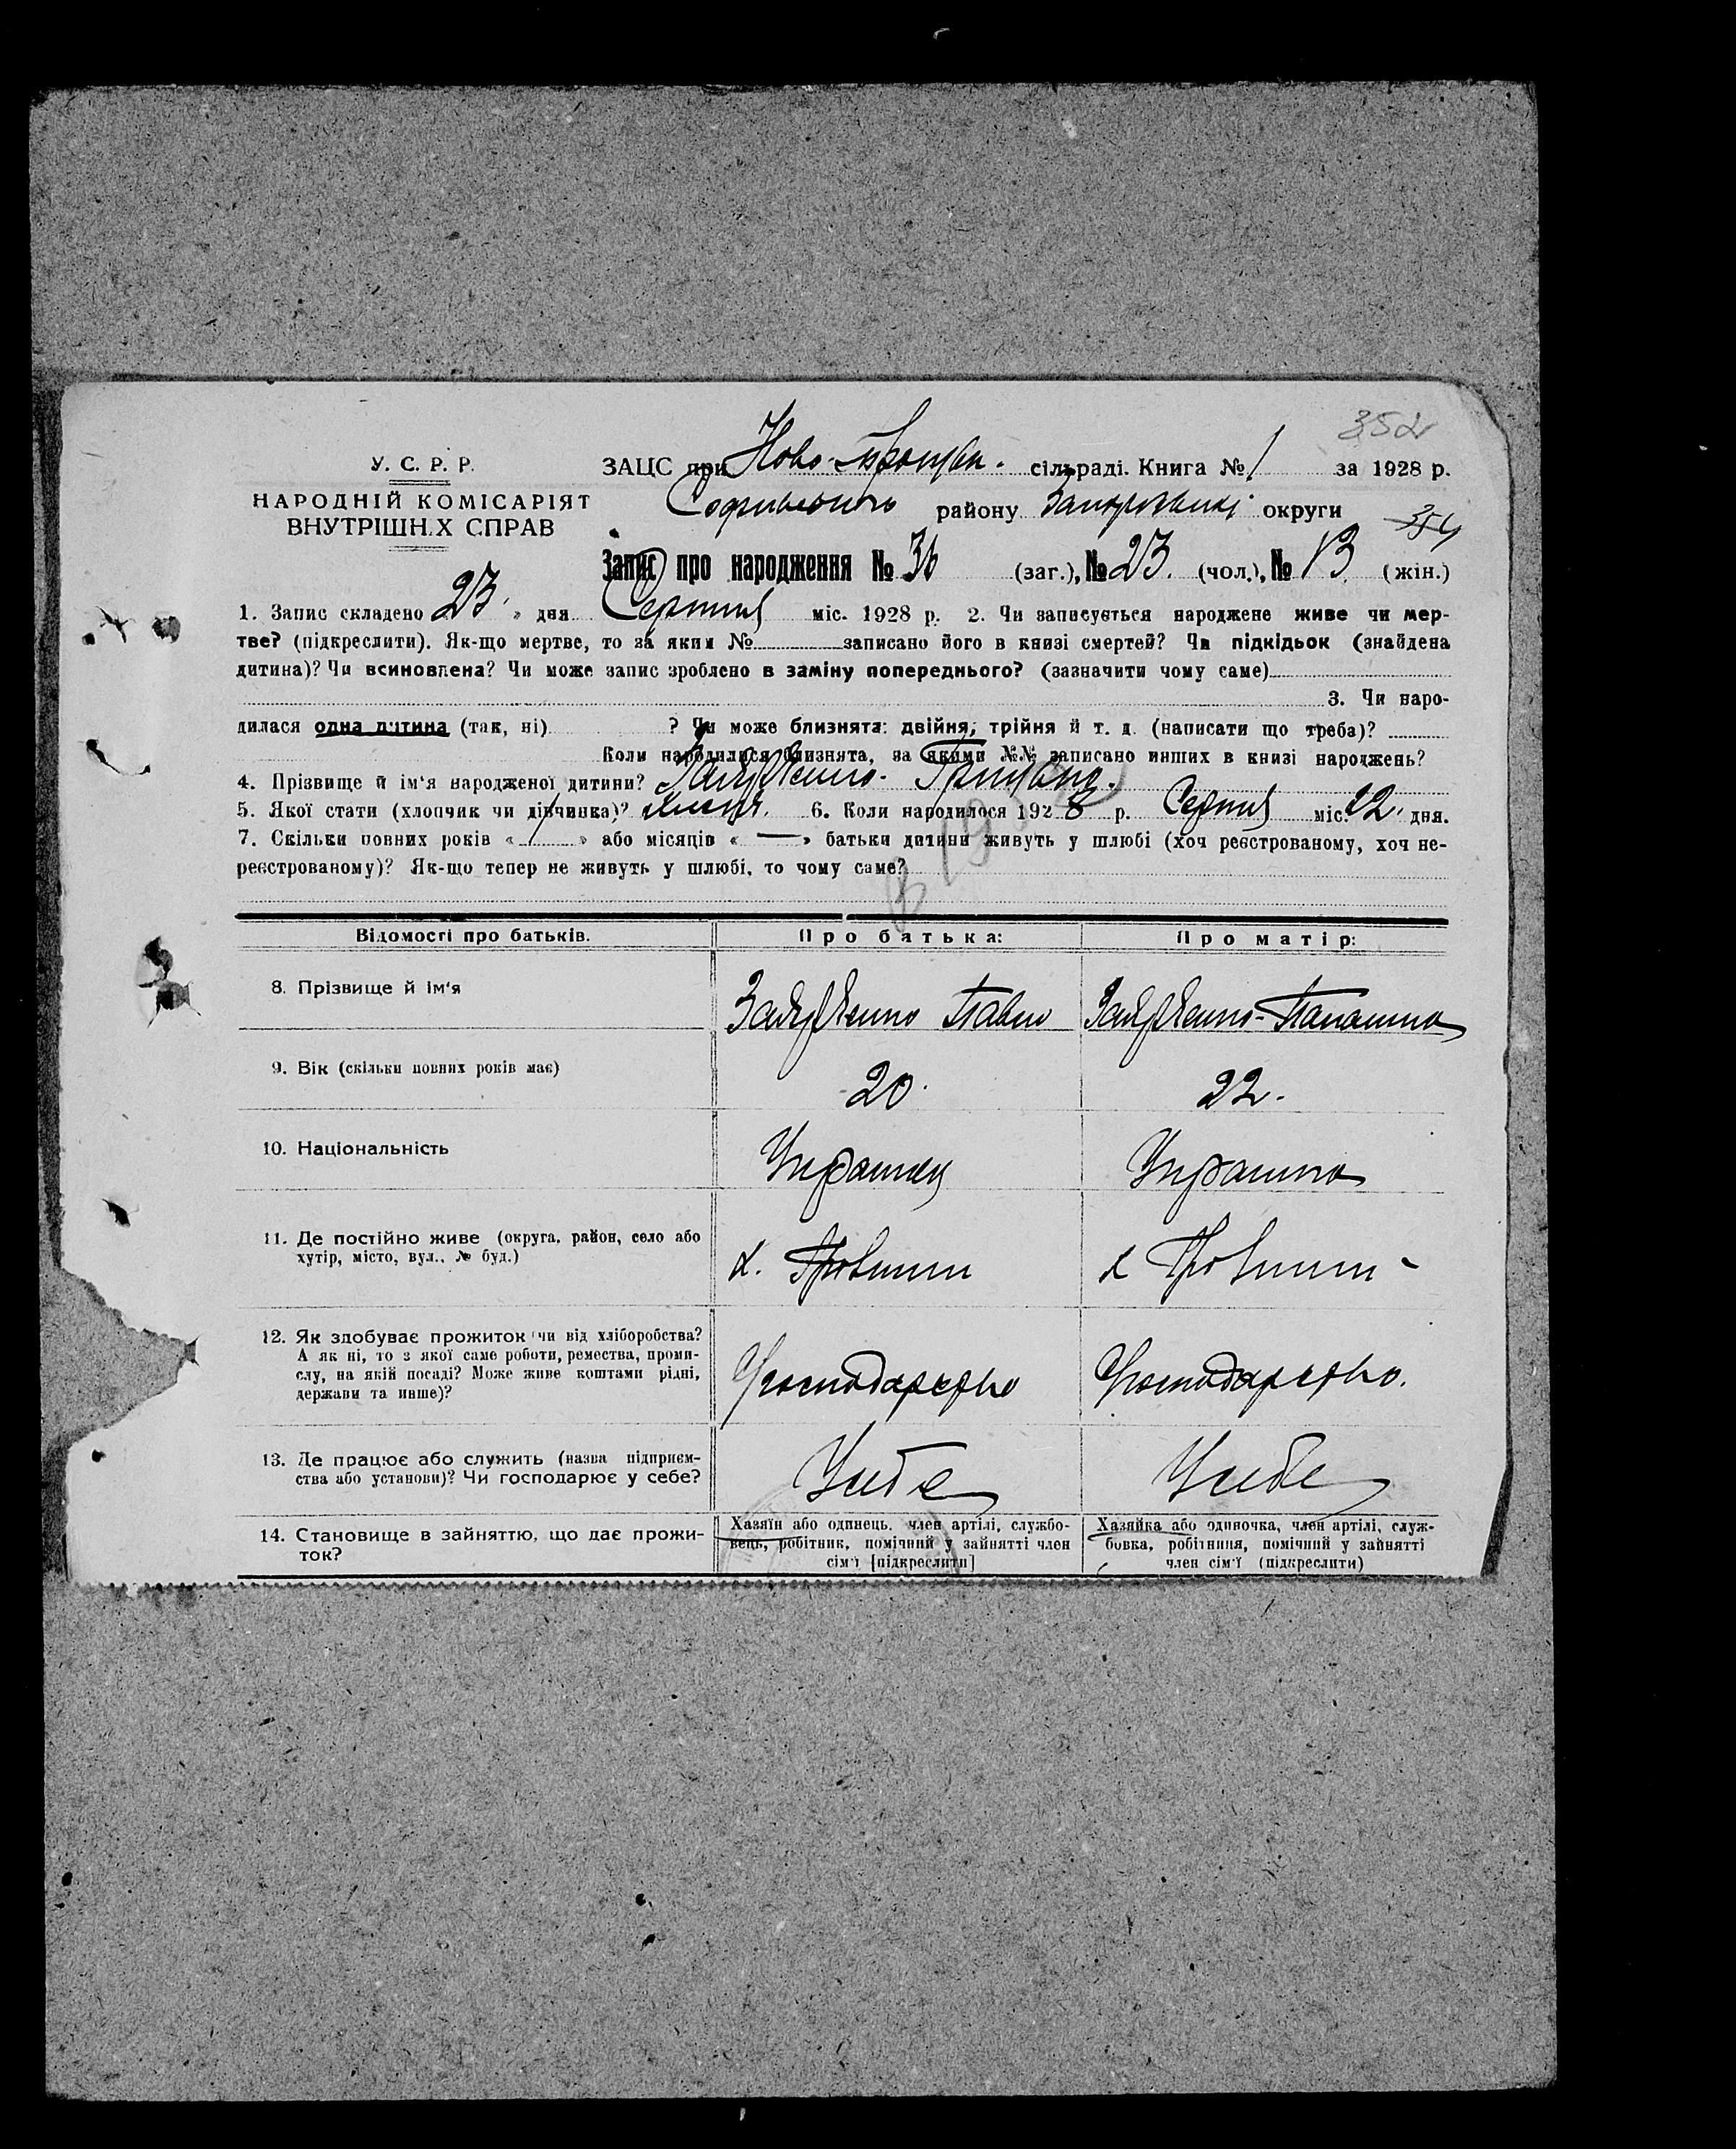 352
У. С. Р. Р.
НАРОДНІЙ КОМІСАРІЯТ
ВНУТРІШН.Х СПРАВ
ЗАЦС при Ново- сільраді. Книга № 1 за 1928 р.
району округи
Запис про народження № 36 (заг.), № 23. (чол.), № 13 (жін.)
1. Запис складено 23 » дня Серпня міс. 1928 р. 2. Чи записується народжене живе чи мер-
тве? (підкреслити). Як-що мертве, то за яким № записано його в книзі смертей? Чи підкідьок (знайдена
дитина)? Чи всиновлена? Чи може запис зроблено в заміну попереднього? (зазначити чому саме)
3. Чи наро-
дилася одна дитина (так, ні) ? Чи може близнята: двійня, трійня й т. д. (написати що треба)?
Коли народилися близнята, за якими №№ записано инших в книзі народжень?
4. Прізвище й ім'я народженої дитини?
5. Якої стати (хлопчик чи дівчинка)? 6. Коли народилося 1928 р. Серпня міс. 22. дня.
7. Скільки повних років « 1 » або місяців « — » батьки дитини живуть у шлюбі (хоч реєстрованому, хоч не-
реєстрованому)? Як-що тепер не живуть у шлюбі, то чому саме?
Відомості про батьків. Про батька: Про матір:
8. Прізвище й ім'я
Павло
9. Вік (скільки повних років має)
20. 22.
10. Національність
Украинец Украинка
11. Де постійно живе (округа, район, село або
хутір, місто, вул., № буд.)
х. х
12. Як здобуває прожиток чи від хліборобства?
А як ні, то з якої саме роботи, ремества, проми-
слу, на якій посаді? Може живе коштами рідні,
держави та инше)?
13. Де працює або служить (назва підприєм-
ства або установи)? Чи господарює у себе?
У себе У себе
14. Становище в зайняттю, що дає прожи-
ток?
Хазяїн або одинець, член артілі, службо-
вець, робітник, помічний у зайнятті член
сім'ї [підкреслити]
Хазяйка або одиночка, член артілі, служ-
бовка, робітниця, помічний у зайнятті
член сім'ї (підкреслити)